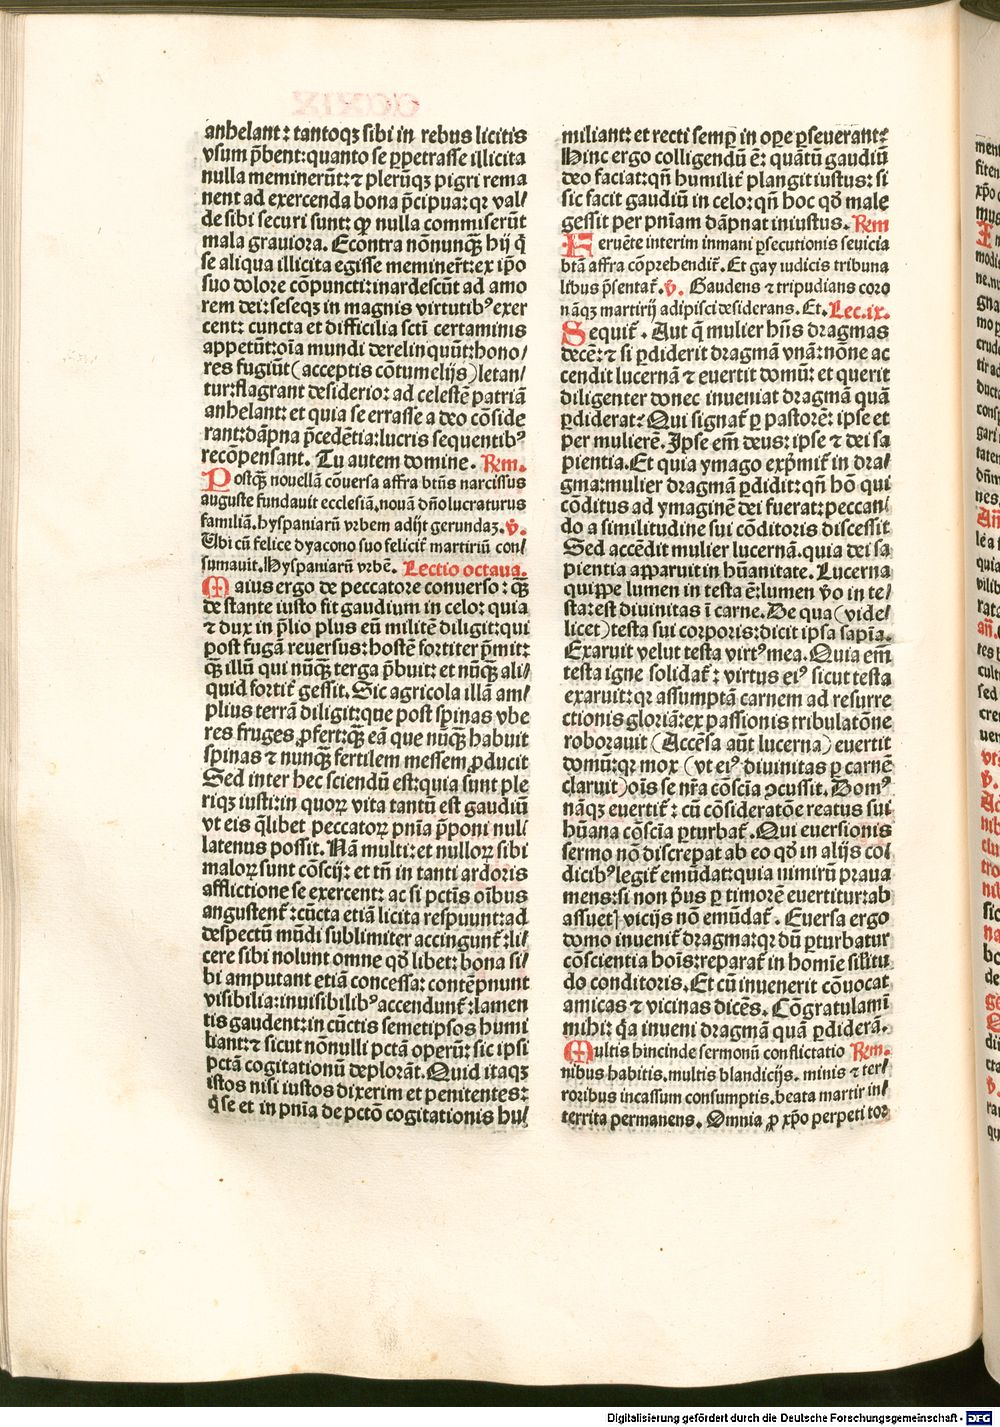 anhelant: tantoqꝫ sibi in rebus licitis
vsum p̄bent: quanto se ꝑpetrasse illicita
nulla meminerūt: ⁊ plerūqꝫ pigri rema
nent ad exercenda bona p̄cipua: qꝛ val⸗
de sibi securi sunt: ꝙ nulla commiserūt
mala grauiora. Econtra nōnunqꝫ hij q̄
se aliqua illicita egisse meminer̄t: ex ip̄o
suo dolore cōpuncti: inardescūt ad amo
rem dei: seseqꝫ in magnis virtutibꝰ exer
cent: cuncta et difficilia sctī certaminis
appetūt: oīa mundi derelinquūt: hono⸗
res fugiūt (acceptis cōtumelijs) letan⸗
tur: flagrant desiderio: ad celestē patriā
anhelant: et quia se errasse a deo cōside
rant: dāpna p̄cedētia: lucris sequentibꝰ
recōpensant. Tu autem domine. Rm̄.
Postqꝫ nouellā cōuersa affra btūs narcissus
auguste fundauit ecclesiā. nouā dn̄o lucraturus
familiā. hyspaniarū vrbem adijt gerundaꝫ. v̄.
Vbi cū felice dyacono suo felicit̄ martiriū con⸗
sumauit. Hyspaniarū vrbē. Lectio octaua.
Maius ergo de peccatore conuerso: qꝫ
de stante iusto fit gaudium in celo: quia
⁊ dux in p̄lio plus eū militē diligit: qui
post fugā reuersus: hostē fortiter p̄mit:
qꝫ illū qui nūqꝫ terga p̄buit: et nūqꝫ ali⸗
quid fortit̄ gessit. Sic agricola illā am⸗
plius terrā diligit: que post spinas vbe
res fruges ꝓfert: qꝫ eā que nūqꝫ habuit
spinas ⁊ nunqꝫ fertilem messem ꝓducit
Sed inter hec sciendū est: quia sunt ple
riqꝫ iusti: in quoꝝ vita tantū est gaudiū
vt eis q̄libet peccatoꝝ pn̄ia p̄poni nul⸗
latenus possit. Nā multi: et nulloꝝ sibi
maloꝝ sunt cōscij: et tn̄ in tanti ardoris
afflictione se exercent: ac si pctīs oībus
angustent̄: cūcta etiā licita respuunt: ad
despectū mūdi sublimiter accingunt̄: li⸗
cere sibi nolunt omne qd̄ libet: bona si⸗
bi amputant etiā concessa: contēpnunt
visibilia: inuisibilibꝰ accendunt̄: lamen
tis gaudent: in cūctis semetipsos humi
liant: ⁊ sicut nōnulli pctā operū: sic ipsi
pctā cogitationū deplorāt. Quid itaqꝫ
istos nisi iustos dixerim et penitentes:
q̄ se et in pn̄ia de pctō cogitationis hu⸗
miliant: et recti semꝑ in oꝑe ꝑseuerant:
Hinc ergo colligendū ē: quātū gaudiū
deo faciat: qn̄ humilit̄ plangit iustus: si
sic facit gaudiū in celo: qn̄ hoc qd̄ male
gessit per pn̄iam dāpnat iniustus. Rm̄
Feruēte interim inmani ꝑsecutionis seuicia
btā affra cōprehendit̄. Et gay iudicis tribuna
libus p̄sentat̄. v̄. Gaudens ⁊ tripudians coro
nāqꝫ martirij adipisci desiderans. Et. Lec. ix.
Sequit̄. Aut q̄ mulier hn̄s dragmas
decē: ⁊ si ꝑdiderit dragmā vnā: nōne ac
cendit lucernā ⁊ euertit domū: et querit
diligenter donec inueniat dragmā quā
ꝑdiderat? Qui signat̄ ꝑ pastorē: ipse et
per mulierē. Ipse em̄ deus: ipse ⁊ dei sa
pientia. Et quia ymago exp̄mit̄ in dra⸗
gma: mulier dragmā ꝑdidit: qn̄ hō qui
cōditus ad ymaginē dei fuerat: peccan⸗
do a similitudine sui cōditoris discessit
Sed accēdit mulier lucernā. quia dei sa
pientia apparuit in hūanitate. Lucerna
quippe lumen in testa ē: lumen v̄o in te⸗
sta: est diuinitas ī carne. De qua (vide⸗
licet) testa sui corporis: dicit ipsa sapīa.
Exaruit velut testa virtꝰ mea. Quia em̄
testa igne solidat̄: virtus eiꝰ sicut testa
exaruit: qꝛ assumptā carnem ad resurre
ctionis gloriā: ex passionis tribulatōne
roborauit (Accēsa aūt lucerna) euertit
domū: qꝛ mox (vt eiꝰ diuinitas ꝑ carnē
claruit) oīs se nr̄a cōscīa ꝯcussit. Domꝰ
nāqꝫ euertit̄: cū cōsideratōe reatus sui
hūana cōscīa ꝑturbat̄. Qui euersionis
sermo nō discrepat ab eo qd̄ in alijs col
dicibꝰ legit̄ emūdat: quia nimirū praua
mens: si non p̄us ꝑ timorē euertitur: ab
assuetꝭ vicijs nō emūdat̄. Euersa ergo
domo inuenit̄ dragma: qꝛ dū ꝑturbatur
cōscientia hoīs: reparat̄ in homīe silitu
do conditoris. Et cū inuenerit cōuocat
amicas ⁊ vicinas dicēs. Cōgratulamī
mihi: q̄a inueni dragmā quā ꝑdiderā.
Multis hincinde sermonū conflictatio Rm̄.
nibus habitis. multis blandicijs. minis ⁊ ter⸗
roribus incassum consumptis. beata martir in⸗
territa permanens. Omnia ꝓ xp̄o perpeti tor
Digitalisierung gefördert durch die Deutsche Forschungsgemeinschaft - DFG